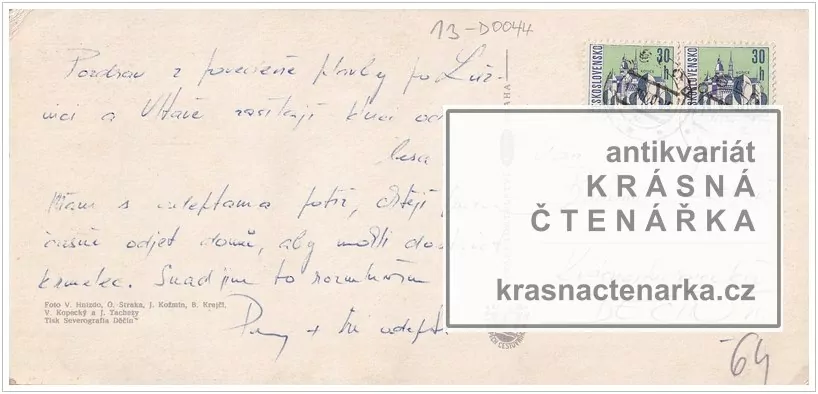 13-D0044
Pozdrav z povedené plavby po Luž-
nici a Vltavě zasílají kluci od
lesa
Mám s adeptama potíž, chtějí
odjet domů, aby mohli dostávat
krmelec. Snad jim to rozmluvím
+ tři adept.
Foto V. Hnízdo, O. Straka, J. Kožmín, B. Krejčí,
V. Kopecký a J. Tachezy
Tisk Severografia Děčín
ČESKOSLOVENSKO
30 h
ČESKOSLOVENSKO
30 h
antikvariát
KRÁSNÁ
ČTENÁŘKA
krasnactenarka.cz
-64